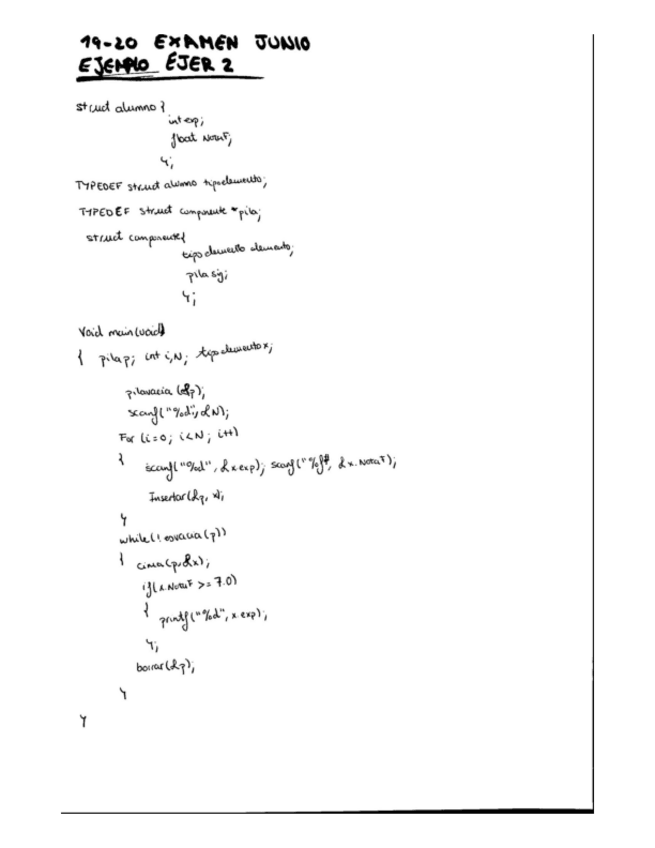 19-20 EXAMEN JUNIO
EJEMPLO EJER 2
struct alumno {
int exp;
float NotaF;
};
TYPEDEF struct alumno tipoelemento;
TYPEDEF struct componente *pila;
struct componente{
tipoelemento elemento;
pila sig;
};
Void main(void)
{ pila p; int i,N; tipoelemento x;
pilavacia (&p);
scanf("%d", &N);
For (i=0; i<N; i++)
{ scanf("%d", &x.exp); scanf("%f", &x.NotaF);
Insertar(&p, x);
}
while(!esvacia(p))
{ cima(p,&x);
if(x.NotaF >= 7.0)
{ printf("%d", x.exp);
};
borrar(&p);
}
}